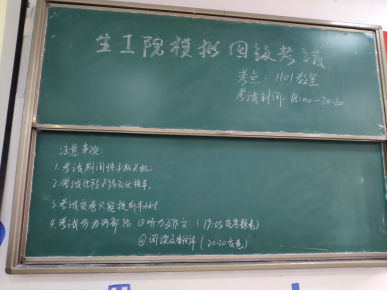 生工院模拟四级考试
考点：1101教室
考试时间：18:00—20:20
注意事项：
1.考试期间将手机关机；
2.考试过程不得交头接耳；
3.考试交卷只能提前半小时
4.考试分为两部分 ①听力与作文（19:05交答题卷）
②阅读及翻译（20:20交卷）